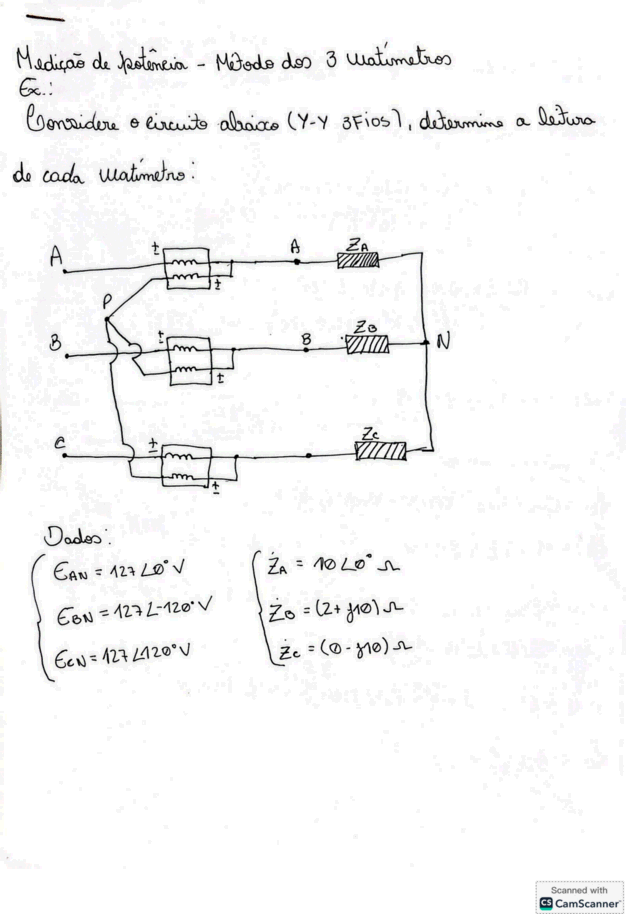 Medição de potência - Método dos 3 watímetros
Ex.:
Considere o circuito abaixo (Y-Y 3Fios), determine a leitura
de cada watímetro:
A ± ± A ZA
P
B ± ± B ZB N
C ± ± ZC
Dados:
EAN = 127∠0° V ŻA = 10∠0° Ω
EBN = 127∠-120° V ŻB = (2+j10) Ω
ECN = 127∠120° V Żc = (0-j10) Ω
Scanned with
CS CamScanner